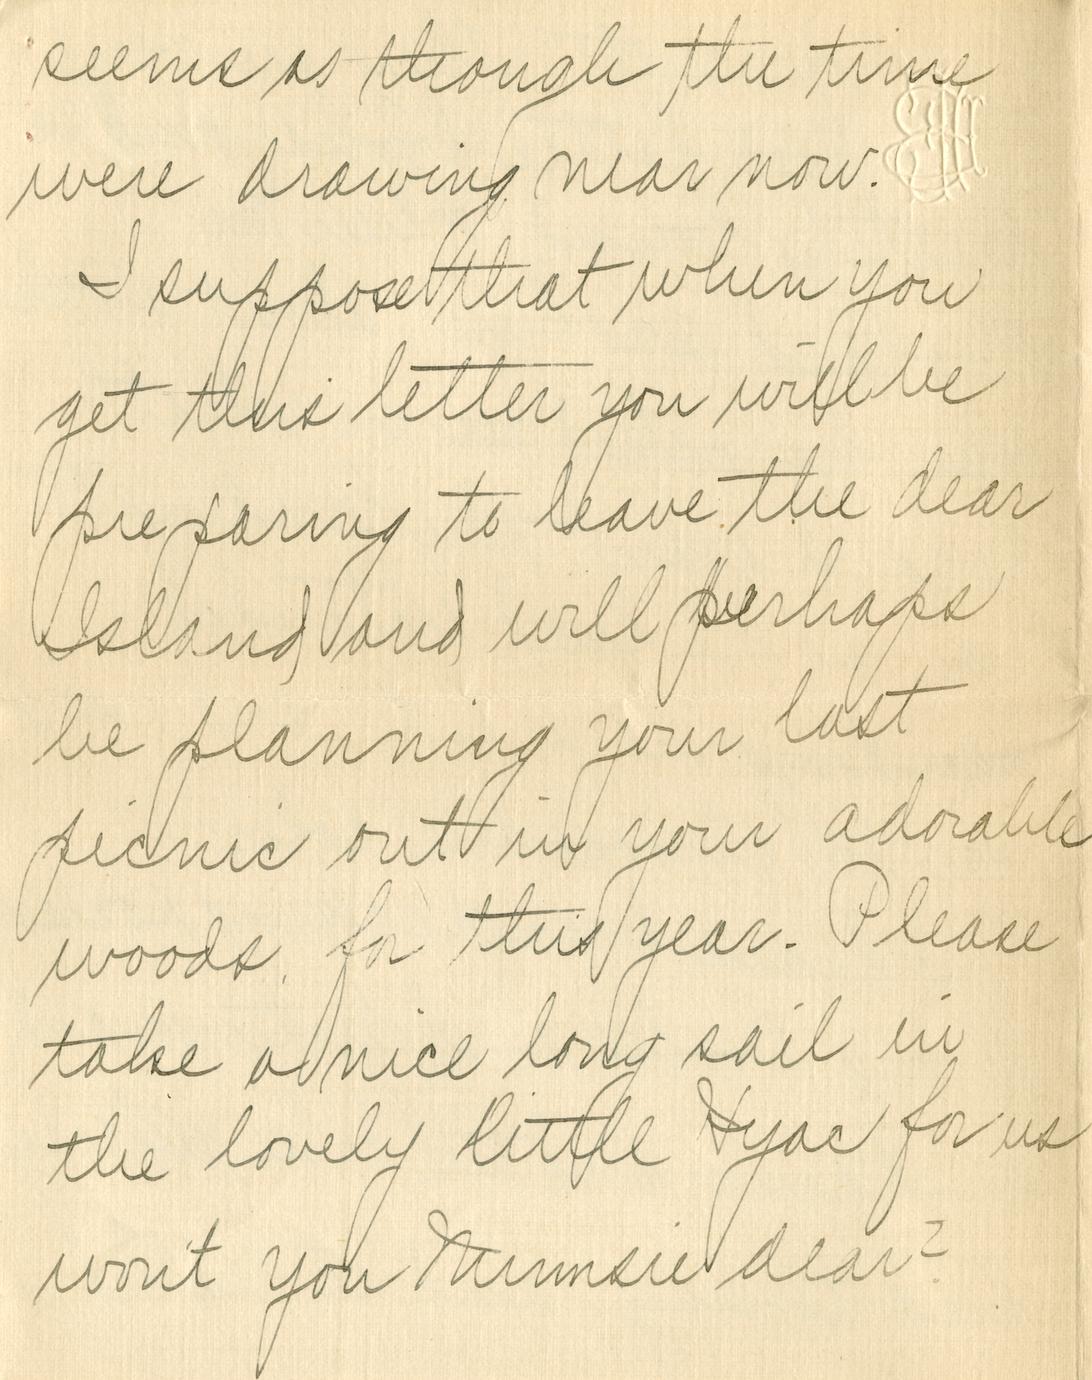 seems as though the time
were drawing near now.
I suppose that when you
get this letter you will be
preparing to leave the dear
Island and will perhaps
be planning your last
picnic out in your adorable
woods. for this year. Please
take a nice long sail in
the lovely little Hyac for us
won't you dear?